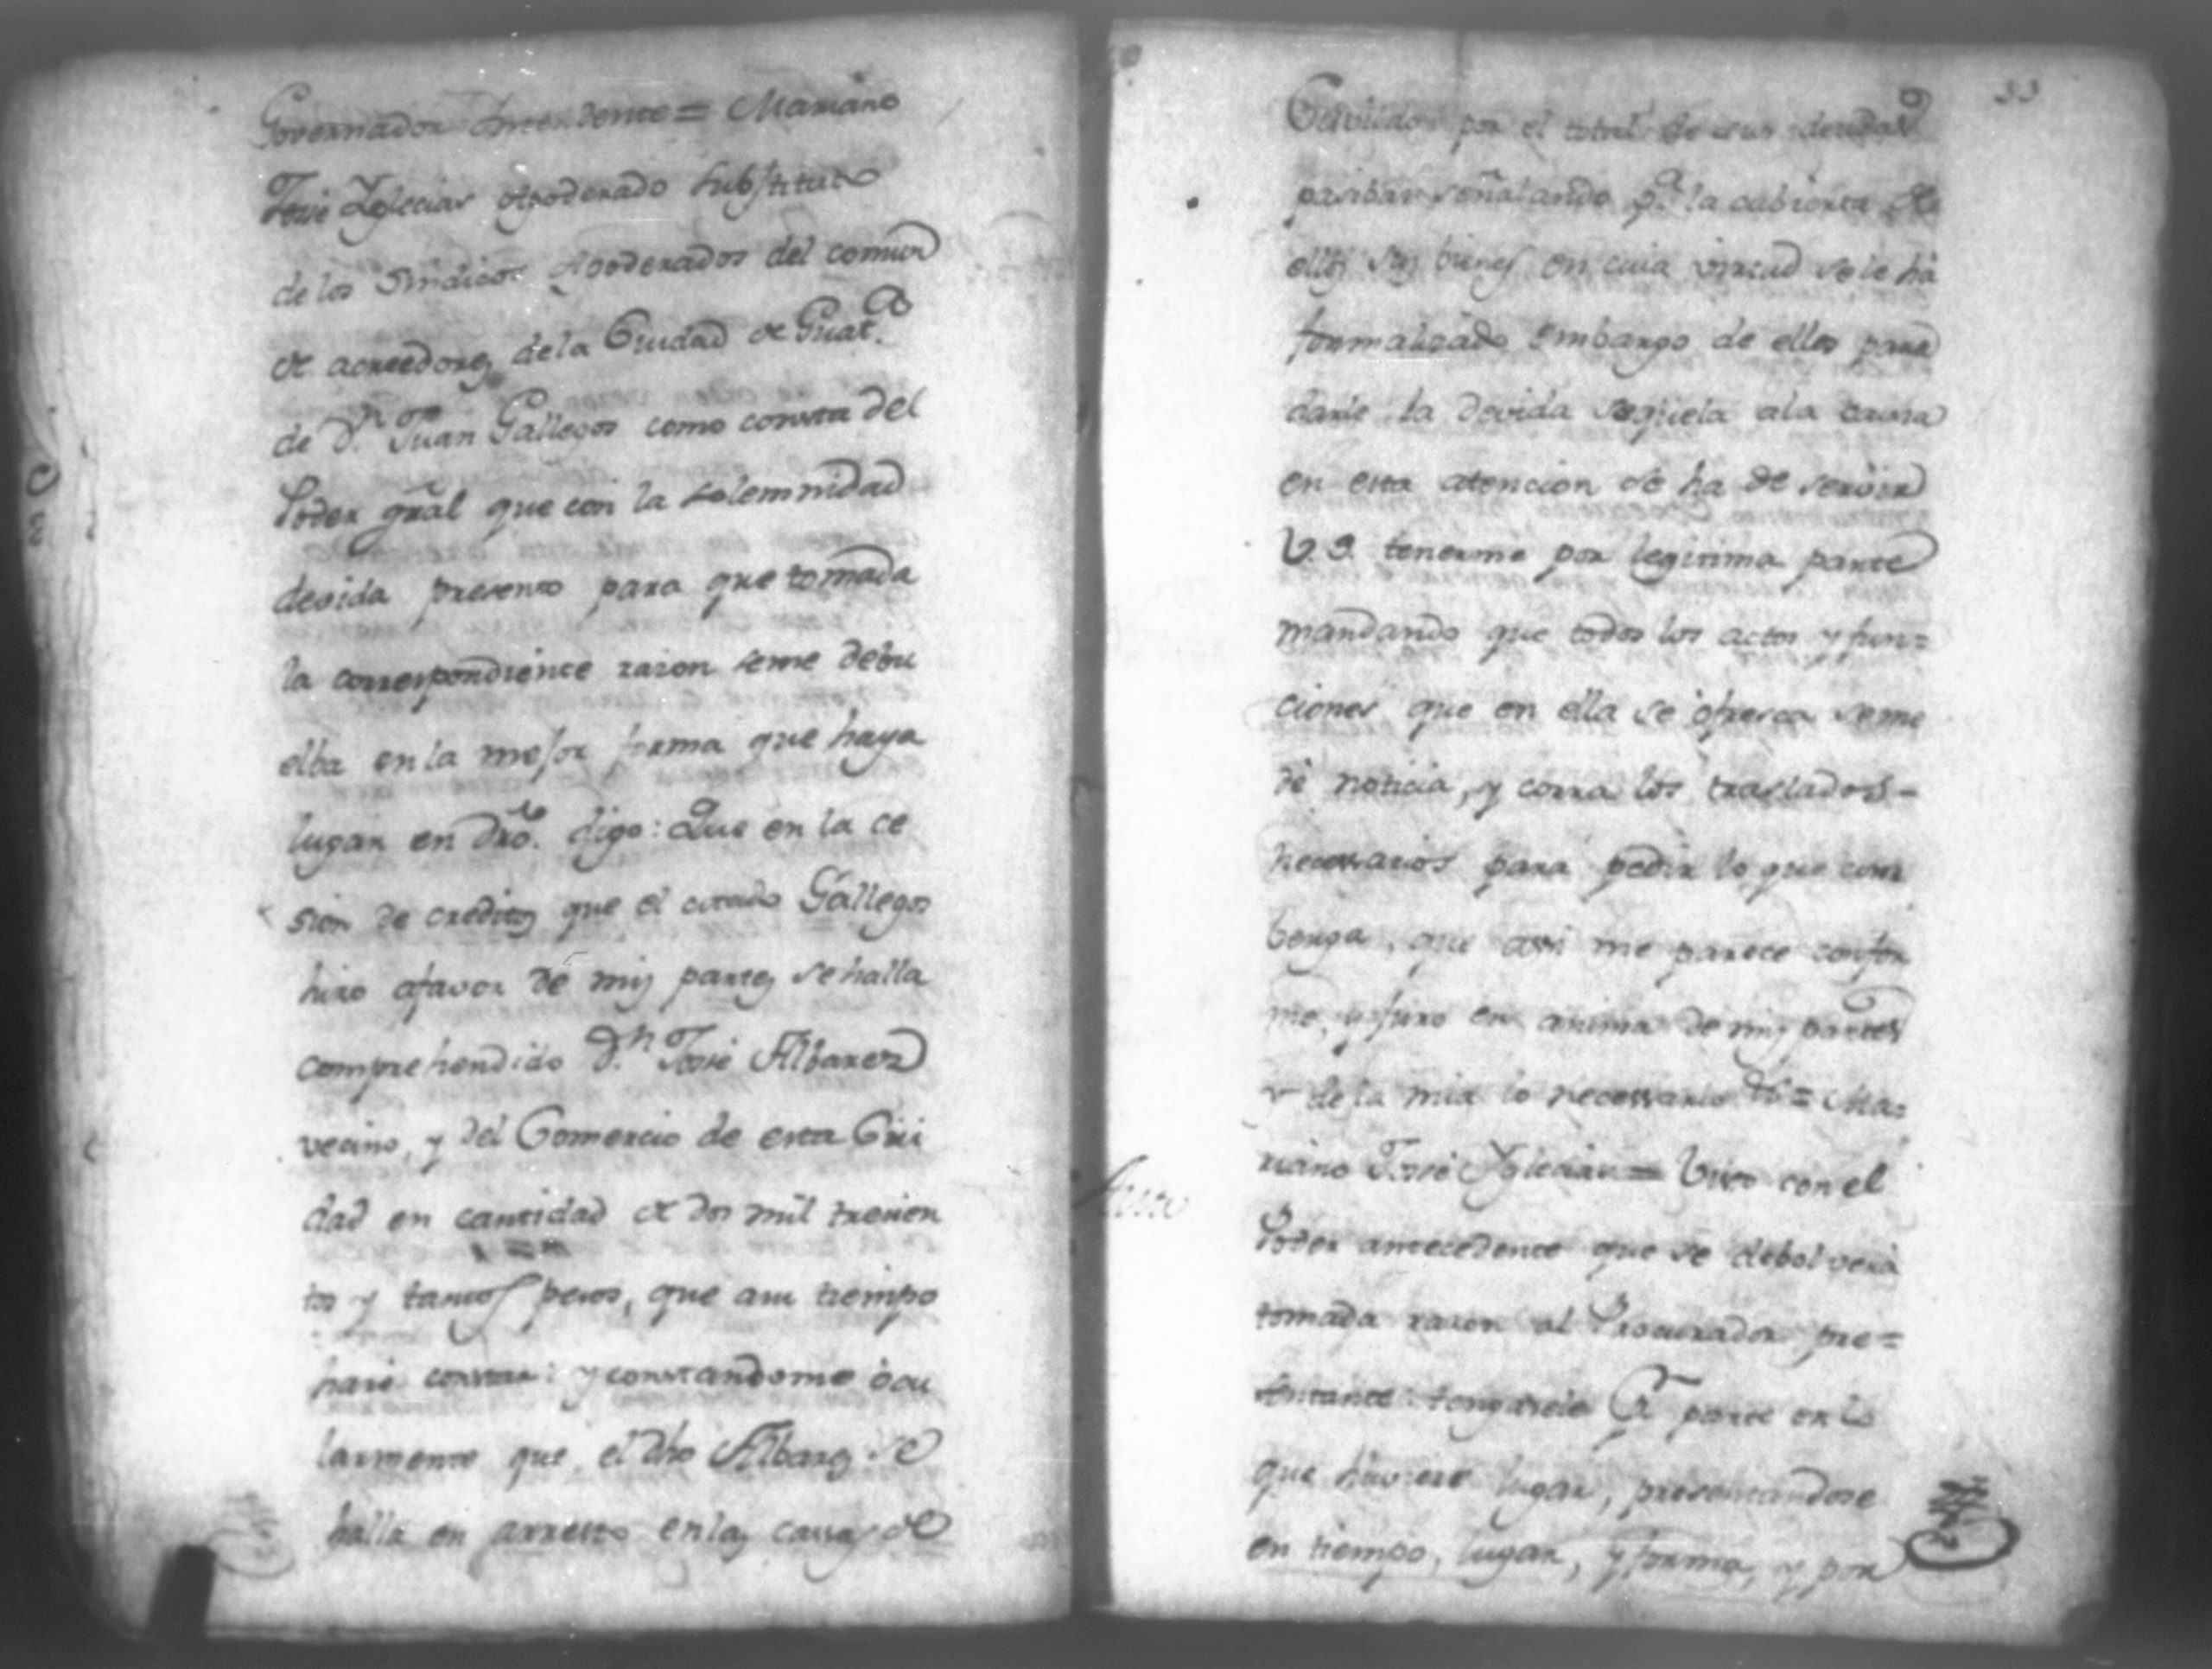 Governador Intendente = Mariano
José Yglecias Apoderado Substituto
de los Sindicos Apoderados del comun
de acreedores de la Ciudad de Guat.a
de D.n Juan Gallegos como consta del
Poder gräl que con la solemnidad
devida presento para que tomada
la correspondiente razon seme debu
elba en la mejor forma que haya
lugar en dro. digo: Que en la ce
sion de creditos que el citado Gallegos
hizo afavor de mis partes se halla
comprehendido D.n José Albarez
vecino, y del Comercio de esta Ciu
dad en cantidad de dos mil trecien
tos y tantos pesos, que asu tiempo
haré constar: y constandome ocu
larmente que el dho Albarez se
halla en arresto enlas casas de
33
Cavildo por el total de sus deudas
pasibas señalando p.a la cubierta de
ellas sus bienes en cuia virtud sele há
formalizado embargo de ellos para
darle la devida seqüela ala causa
en esta atencion se ha de servir
V.S. tenerme por legitima parte
mandando que todos los actos y fun=
ciones que en ella se ofresca seme
dé noticia, y corra los traslados=
necessarios para pedir lo que com
benga, que assi me parece confor
me, y juro en anima de mis partes
y de la mia lo necessario = Ma=
riano José Yglecias = Visto con el
Poder antecedente que se debolverá
tomada razon al Procurador pre=
sentante: tengasele por parte en lo
que huviere lugar, presentandose
en tiempo, lugar, y forma, y por
Auto